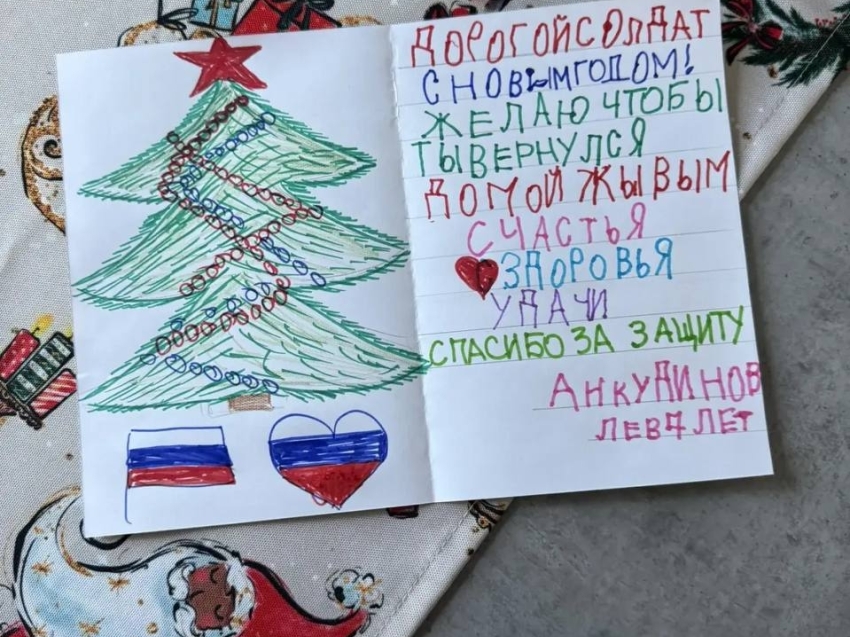 ДОРОГОЙ СОЛДАТ
С НОВЫМ ГОДОМ!
ЖЕЛАЮ ЧТОБЫ
ТЫ ВЕРНУЛСЯ
ДОМОЙ ЖЫВЫМ
СЧАСТЬЯ
ЗДОРОВЬЯ
УДАЧИ
СПАСИБО ЗА ЗАЩИТУ
АНКУДИНОВ
ЛЕВ 7 ЛЕТ